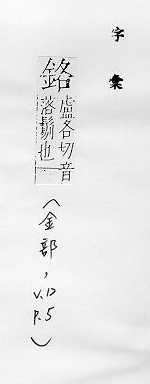 字彙
鉻
盧各切音
落鬎也
(金部,
V.12
P.5)